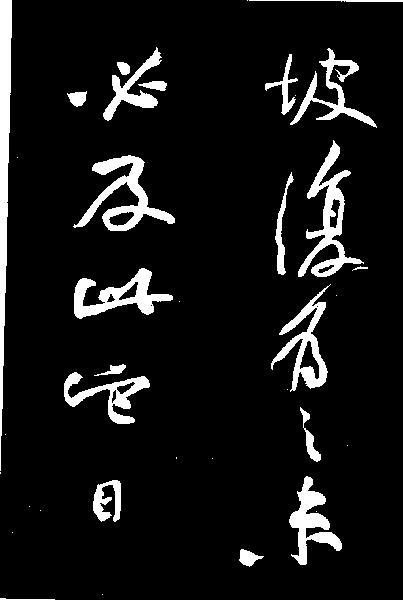 坡復為之未
必及此它日